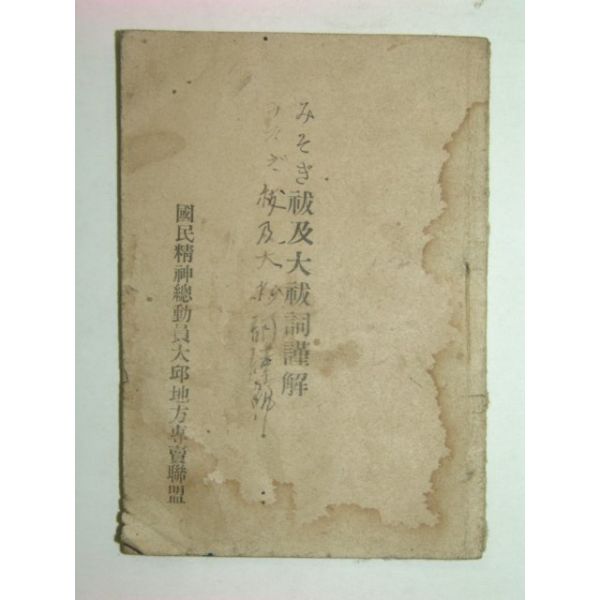 みそぎ祓及大祓詞謹解
みそぎ祓及大祓詞謹解
國民精神總動員大邱地方專賣聯盟